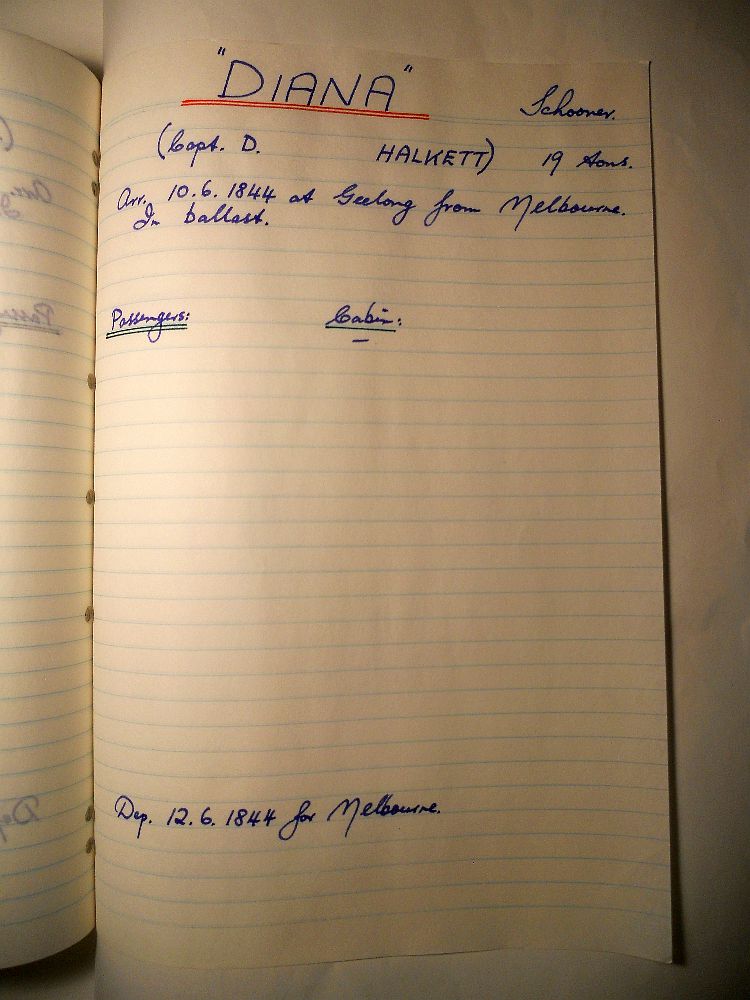 "DIANA" Schooner.
(Capt. D. HALKETT) 19 tons.
Arr. 10.6.1844 at Geelong from Melbourne.
In ballast.
Passengers: Cabin:
—
Dep. 12.6.1844 for Melbourne.